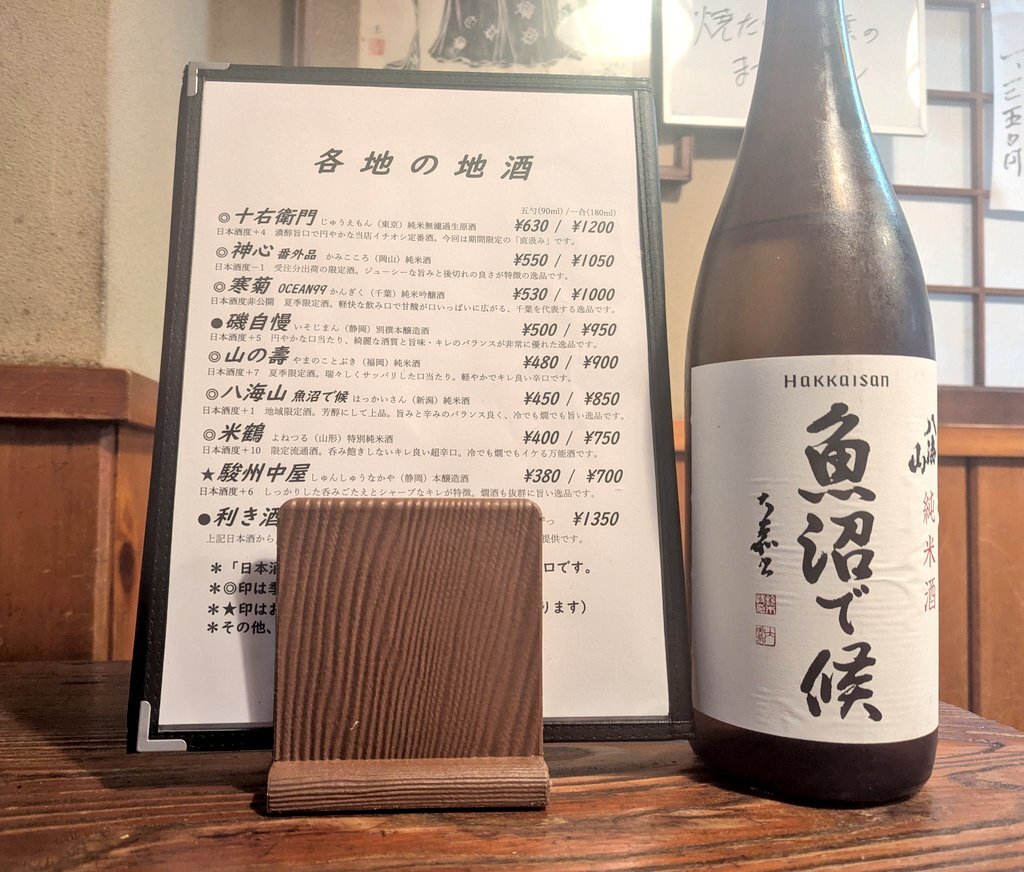 各地の地酒
五勺(90ml)/一合(180ml)
◎十右衛門 じゅうえもん（東京）純米無濾過生原酒 ¥630 / ¥1200
日本酒度+4 濃醇旨口で円やかな当店イチオシ定番酒。今回は期間限定の「直汲み」です。
◎神心 番外品 かみこころ（岡山）純米酒 ¥550 / ¥1050
日本酒度−1 受注分出荷の限定酒。ジューシーな旨みと後切れの良さが特徴の逸品です。
◎寒菊 OCEAN99 かんぎく（千葉）純米吟醸酒 ¥530 / ¥1000
日本酒度非公開 夏季限定酒。軽快な飲み口で甘酸が口いっぱいに広がる、千葉を代表する逸品です。
●磯自慢 いそじまん（静岡）別撰本醸造酒 ¥500 / ¥950
日本酒度+5 円やかな口当たり、綺麗な酒質と旨味・キレのバランスが非常に優れた逸品です。
◎山の壽 やまのことぶき（福岡）純米酒 ¥480 / ¥900
日本酒度+7 夏季限定酒。瑞々しくサッパリした口当たり。軽やかでキレ良い辛口です。
◎八海山 魚沼で候 はっかいさん（新潟）純米酒 ¥450 / ¥850
日本酒度+1 地域限定酒。芳醇にして上品。旨みと辛みのバランス良く、冷でも燗でも旨い逸品です。
◎米鶴 よねつる（山形）特別純米酒 ¥400 / ¥750
日本酒度+10 限定流通酒。呑み飽きしないキレ良い超辛口。冷でも燗でもイケる万能酒です。
★駿州中屋 しゅんしゅうなかや（静岡）本醸造酒 ¥380 / ¥700
日本酒度+6 しっかりした呑みごたえとシャープなキレが特徴。燗酒も抜群に旨い逸品です。
●利き酒 っ ¥1350
上記日本酒から 提供です。
＊「日本酒 口です。
＊◎印は季
＊★印はお ります）
＊その他、
焼た の
ま ん
一、二三五〇円
Hakkaisan
魚沼で候
八海山
純米酒